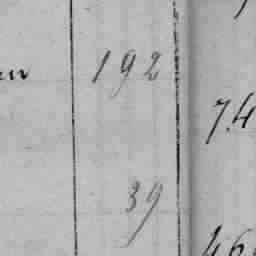 192
74
39
46